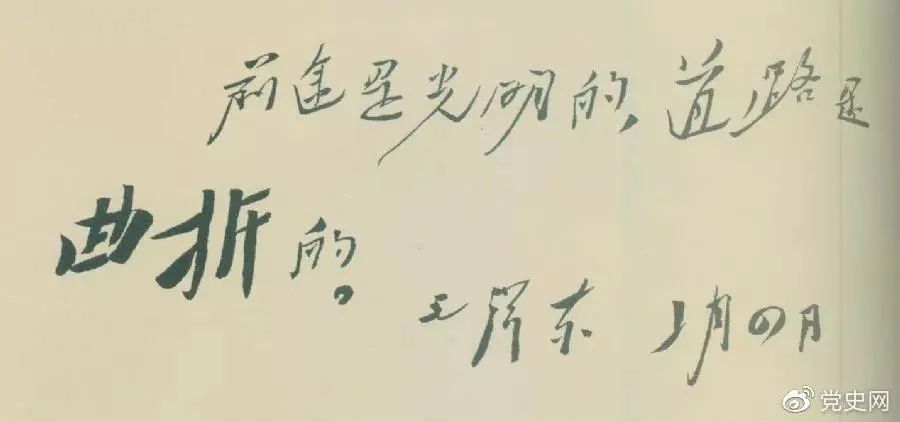 前途是光明的,道路是
曲折的。
毛泽东 1月四日
党史网